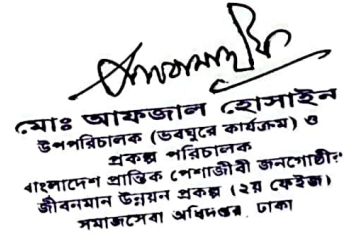 মোঃ আফজাল হোসাইন
উপপরিচালক (ভবঘুরে কার্যক্রম) ও
প্রকল্প পরিচালক
বাংলাদেশ প্রান্তিক পেশাজীবী জনগোষ্ঠীর
জীবনমান উন্নয়ন প্রকল্প (২য় ফেইজ)
সমাজসেবা অধিদপ্তর, ঢাকা